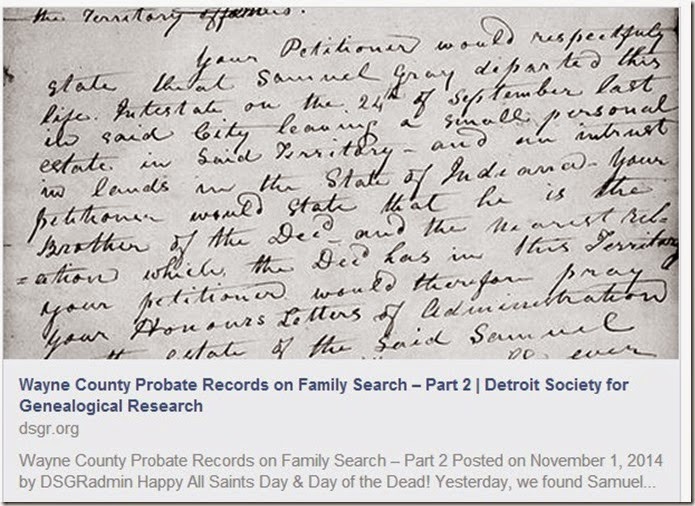 the Territory
Your Petitioner would respectfully
state that Samuel Gray departed this
life. Intestate on the 24th of September last
in said City leaving a small personal
estate in Said Territory - and an intrust
in lands in the State of Indiana - Your
petitioner would state that he is the
Brother of the Decd and the nearest rel=
=ation which the Decd has in this Territory
your petitioner would therefore pray
your Honours Letters of Administration
the estate of the said Samuel
ever
Wayne County Probate Records on Family Search – Part 2 | Detroit Society for
Genealogical Research
dsgr.org
Wayne County Probate Records on Family Search – Part 2 Posted on November 1, 2014
by DSGRadmin Happy All Saints Day & Day of the Dead! Yesterday, we found Samuel...